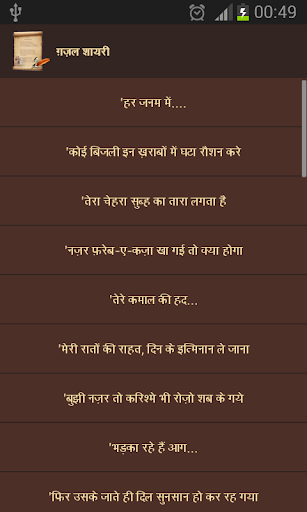 00:49
ग़ज़ल शायरी
'हर जनम में....
'कोई बिजली इन ख़राबों में घटा रौशन करे
'तेरा चेहरा सुब्ह का तारा लगता है
'नज़र फ़रेब-ए-कज़ा खा गई तो क्या होगा
'तेरे कमाल की हद...
'मेरी रातों की राहत, दिन के इत्मिनान ले जाना
'बुझी नज़र तो करिश्मे भी रोज़ो शब के गये
'भड़का रहे हैं आग...
'फिर उसके जाते ही दिल सुनसान हो कर रह गया